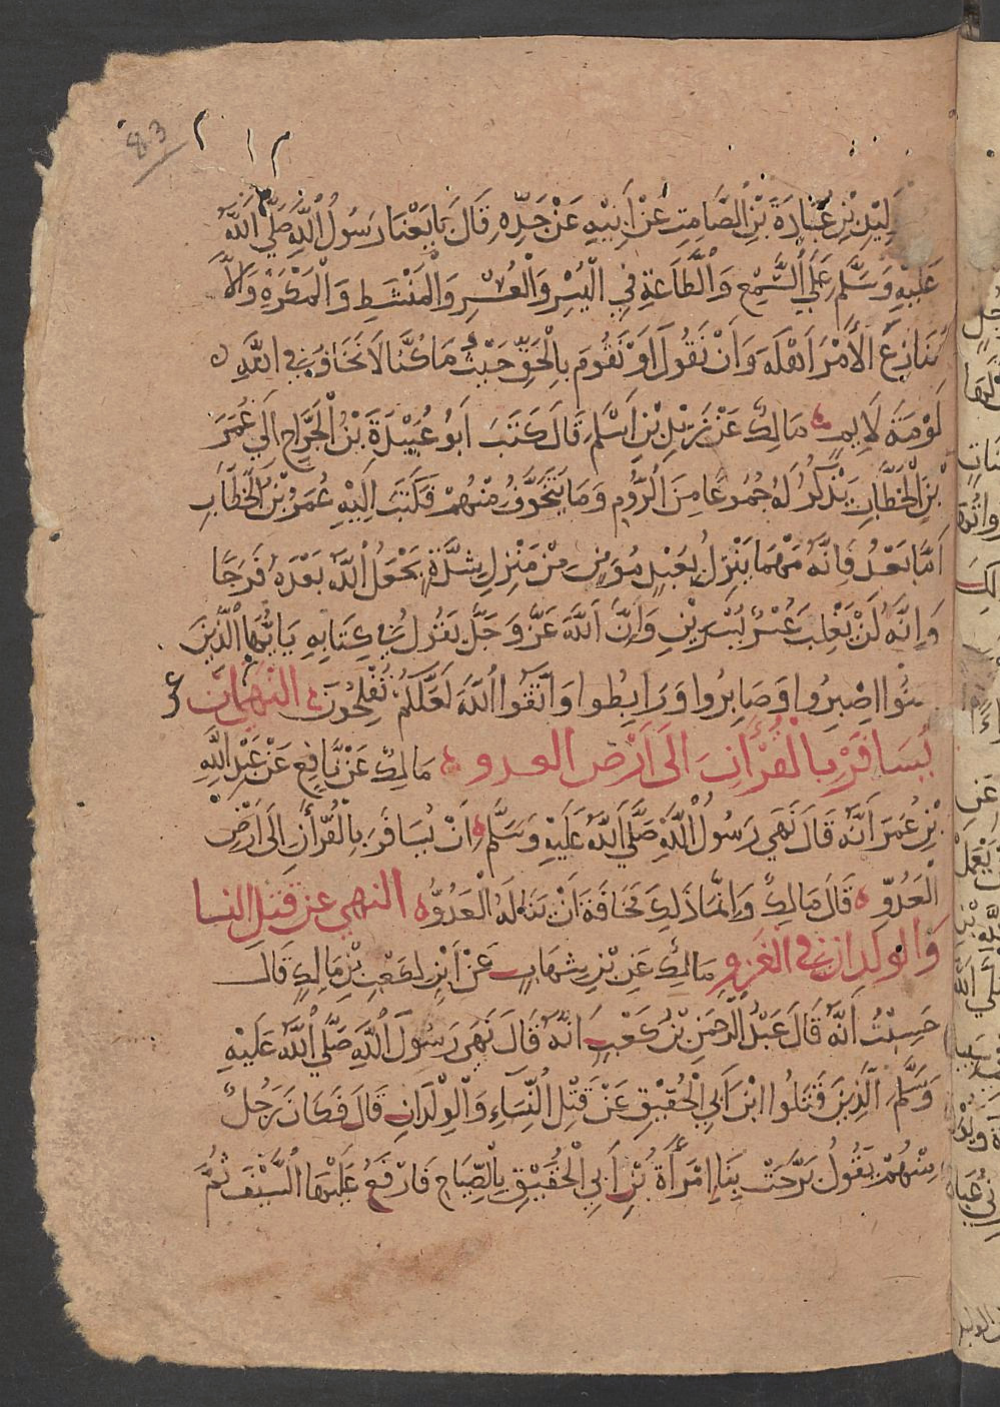 83
لِيْدِ بْنِ عُبَادَةَ بْنِ الصَّامِتِ عَنْ اَبِيْهِ عَنْ جَدِّهِ قَالَ بَايَعْنَا رَسُولَ اللَّهِ صَلَّى اللَّهُ
عَلَيْهِ وَسَلَّمَ عَلَى السَّمْعِ وَالطَّاعَةِ فِي الْيُسْرِ وَالْعُسْرِ وَالْمَنْشَطِ وَالْمَكْرَهِ وَاَلَّا
نُنَازِعَ الْأَمْرَ اَهْلَهُ وَاَنْ نَقُولَ اَوْ نَقُومَ بِالْحَقِّ حَيْثُ مَا كُنَّا لَا نَخَافُ فِي اللَّهِ
لَوْمَةَ لَايِمٍ مَالِكٌ عَنْ زَيْدِ بْنِ اَسْلَمَ قَالَ كَتَبَ اَبُو عُبَيْدَةَ بْنُ الْجَرَّاحِ اِلَى عُمَرَ
بْنِ الْخَطَّابِ يَذْكُرُ لَهُ جُمُوعًا مِنَ الرُّومِ وَمَا يَتَخَوَّفُ مِنْهُمْ فَكَتَبَ اِلَيْهِ عُمَرُ بْنُ الْخَطَّابِ
اَمَّا بَعْدُ فَاِنَّهُ مَهْمَا يَنْزِلْ بِعَبْدٍ مُؤْمِنٍ مِنْ مَنْزِلِ شِدَّةٍ يَجْعَلُ اللَّهُ بَعْدَهُ فَرَجًا
وَاِنَّهُ لَنْ يَغْلِبَ عُسْرٌ يُسْرَيْنِ وَاِنَّ اللَّهَ عَزَّ وَجَلَّ يَقُولُ فِي كِتَابِهِ يَايُّهَا الَّذِينَ
مَنُوا اصْبِرُوا وَصَابِرُوا وَرَابِطُوا وَاتَّقُوا اللَّهَ لَعَلَّكُمْ تُفْلِحُونَ النهي ان
يُسَافَرَ بِالْقُرْأَنِ اِلَى اَرْضِ العدو مَالِكٌ عَنْ نَافِعٍ عَنْ عَبْدِ اللَّهِ
بْنِ عُمَرَ اَنَّهُ قَالَ نَهَى رَسُولُ اللَّهِ صَلَّى اللَّهُ عَلَيْهِ وَسَلَّمَ اَنْ يُسَافَرَ بِالْقُرْأَنِ اِلَى اَرْضِ
الْعَدُوِّ قَالَ مَالِكٌ وَاِنَّمَا ذَلِكَ مَخَافَةَ اَنْ يَنَالَهُ الْعَدُوُّ النهي عن قتل النسا
وَالولدان فى الغَزوِ مَالِكٌ عَنِ بْنِ شِهَابٍ عَنْ اَبْنٍ لِكَعْبِ بْنِ مَالِكٍ قَالَ
حَسِبْتُ اَنَّهُ قَالَ عَبْدُ الرَّحْمَنِ بْنُ كَعْبٍ اَنَّهُ قَالَ نَهَى رَسُولُ اللَّهِ صَلَّى اللَّهُ عَلَيْهِ
وَسَلَّمَ الَّذِينَ قَتَلُوا ابْنَ اَبِي الْحُقَيْقِ عَنْ قَتْلِ النِّسَاءِ وَالْوِلْدَانِ قَالَ فَكَانَ رَجُلٌ
مِنْهُمْ يَقُولُ بَرَّحَتْ بِنَا اِمْرَأَةُ بْنِ أَبِي الْحُقَيْقِ بِالصِّيَاحِ فَارْفَعُ عَلَيْهَا السَّيْفَ ثُمَّ